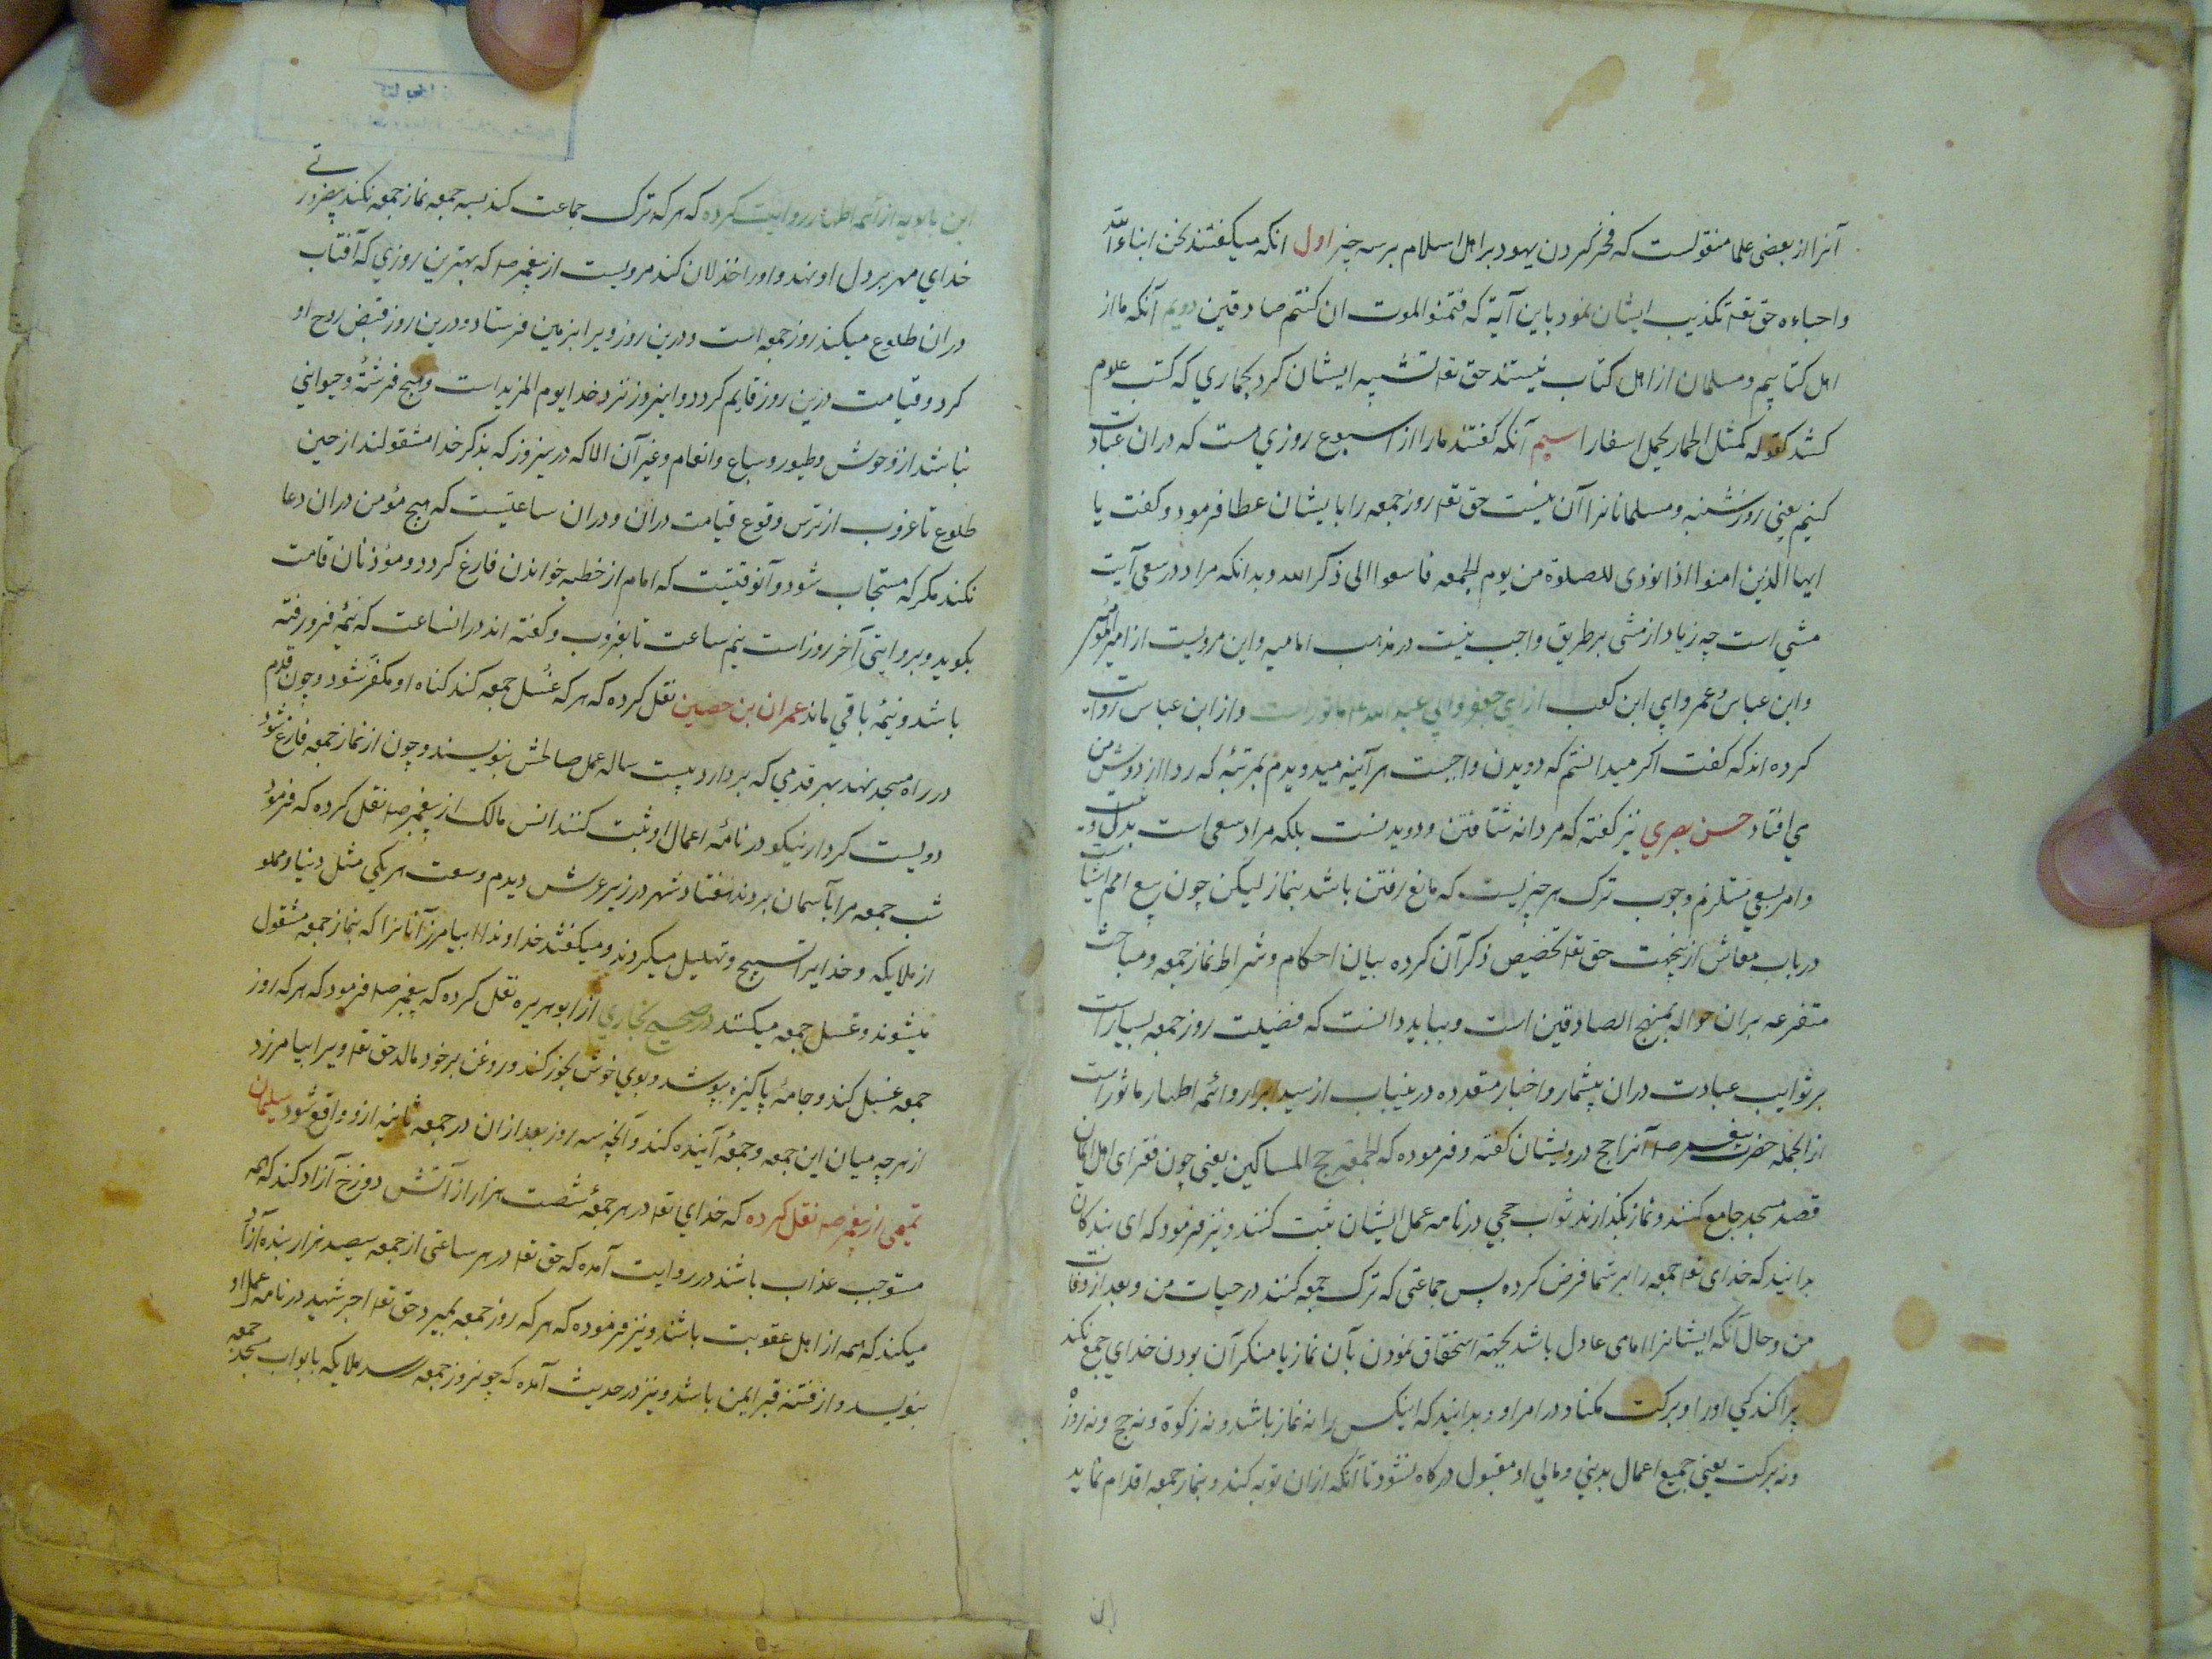 آنرا از بعضی علما منقولست که فخر کردن یهود بر اهل اسلام بر سه چیز اول انکه میکفتند نحن ابناء الله
و احباءه حق تعه تکذیب ایشان نمود باین آیة که فتمنوا الموت ان کنتم صادقین دویم آنکه ما از
اهل کتابیم و مسلمان از اهل کتاب نیستند حق تعه تشبیه ایشان کرد بحماری که کتب علوم
کشد کقوله کمثل الحمار یحمل اسفارا سیم آنکه گفتند ما را از اسبوع روزي هست که دران عبادت
کنیم یعنی روز شنبه و مسلمانانرا آن نیست حق تعه روز جمعه را بایشان عطا فرمود و کفت یا
ایها الذین امنوا اذا نودی للصلوة من یوم الجمعه فاسعوا الی ذکر الله و بدانکه مراد در سعی آیت
مشي است چه زیاد از مشی بر طریق واجب نیست در مذهب امامیه و این مرویست از امیرالمؤمنین
و ابن عباس و عمر و ابي ابن کعب از ابي جعفر و ابي عبد الله ع ماثور است و از ابن عباس روایت
کرده اند که کفت اکر میدانستم که دویدن واجبست هر آینه میدویدم بمرتبهٔ که ردا از دوش من
مي افتاد حسن بصري نیز کفته که مرد انه شتافتن و دویدنست بلکه مراد سعی است بدل و نیت
و امر بسعي مستلزم وجوب ترک هر چیزیست که مانع رفتن باشد بنماز لیکن چون بیع اهم اشیاست
در باب معاش ازینجهت حق تعه تخصیص ذکر آن کرده بیان احکام و شرایط نماز جمعه و مباحث
متفرعه بران حواله بمنهج الصادقین است و بباید دانست که فضیلت روز جمعه بسیار است
بر ثوابب عبادت دران بیشمار و اخبار متعدده درینباب از سید ابرار و ائمه اطهار ماثور است
از انجمله حضرت پیغمبر صه آنرا حج درویشان کفته و فرموده که الجمعة حج المساکین یعنی چون فقرای اهل ایمان
قصد مسجد جامع کنند و نماز بکذارند ثواب حجي در نامه عمل ایشان ثبت کنند و نیز فرمود که ای بندکان
بدانید که خدای تعه جمعه را بر شما فرض کرده پس جماعتی که ترک جمعه کنند در حیات من و بعد از وفات
من و حال آنکه ایشانرا امامی عادل باشد بجهة استخفاق نمودن بآن نماز یا منکر آن بودن خداي جمع نکند
پراکندکي اورا و برکت مکناد در امر او و بدانید که اینکس را نه نماز باشد و نه زکوة و نه حج و نه روزه
و نه برکت یعنی جمیع اعمال بدني و مالي او مقبول درکاه نشود تا آنکه ازان توبه کند و بنماز جمعه اقدام نماید
ابن بابویه از ائمه اطهار روایت کرده که هر که ترک جماعت کند بسه جمعه نماز جمعه نکند بیضرورتے
خداي مهر بر دل او نهد و اورا خذلان کند مرویست از پیغمبر صه که بهترین روزي که آفتاب
دران طلوع میکند روز جمعه است و درین روز ویرا بزمین فرستاد و درین روز قبض روح او
کرد و قیامت درین روز قایم کردد و اینروز نزد خدا یوم المزید است و هیچ فرشتهٔ و حیوانی
نباشد از وحوش و طیور و سباع و انعام و غیر آن الا که درینروز که بذکر خدا مشغولند از حین
طلوع تا غروب از ترس وقوع قیامت دران و دران ساعتیست که هیچ مؤمن دران دعا
نکند مکر که مستجاب شود و آنوقتیست که امام از خطبه خواندن فارغ کردد و مؤذنان قامت
بکوید و بروایتی آخر روز است نیم ساعت تا بغروب و کفته اند درانساعت که نیمهٔ فرو رفته
باشد و نیمهٔ باقي ماند عمران بن حصین نقل کرده که هر که غسل جمعه کند کناه او مکفر شود و چون قدم
در راه مسجد نهد بهر قدمي که بردارد بیست ساله عمل صالحش بنویسند و چون از نماز جمعه فارغ شود
دویست کردار نیکو در نامهٔ اعمال او ثبت کنند انس مالک از پیغمبر صه نقل کرده که فرمود
شب جمعه مرا بآسمان بردند هفتاد شهر در زیر عرش دیدم وسعت هر یکي مثل دنیا و مملو
از ملایکه و خدایرا تسبیح و تهلیل میکردند و میکفتند خداوندا بیامرز آنانرا که بنماز جمعه مشغول
میشوند و غسل جمعه میکنند در صحیح بخاري از ابوهریره نقل کرده که پیغمبر صه فرمود که هر که روز
جمعه غسل کند و جامهٔ پاکیزه بپوشد و بوي خوش بخور کند و روغن بر خود مالد حق تعه ویرا بیامرزد
از هر چه میان این جمعه و جمعهٔ آینده کند و آنچه سه روز بعد ازان در جمعه ثانیه ازو واقع شود سلیمان
تمیمی از پیغمبر صه نقل کرده که خداي تعه در هر جمعهٔ شصت هزار از آتش دوزخ آزاد کند که همه
مستوجب عذاب باشند در روایت آمده که حق تعه در هر ساعتی از جمعه سیصد هزار بنده آزاد
میکند که همه از اهل عقوبت باشند و نیز فرموده که هر که روز جمعه بمیرد حق تعه اجر شهید در نامه عمل او
بنویسد و از فتنه قبر ایمن باشد و نیز در حدیث آمده که چو نروز جمعه رسد ملایکه بابواب مسجد جمعه